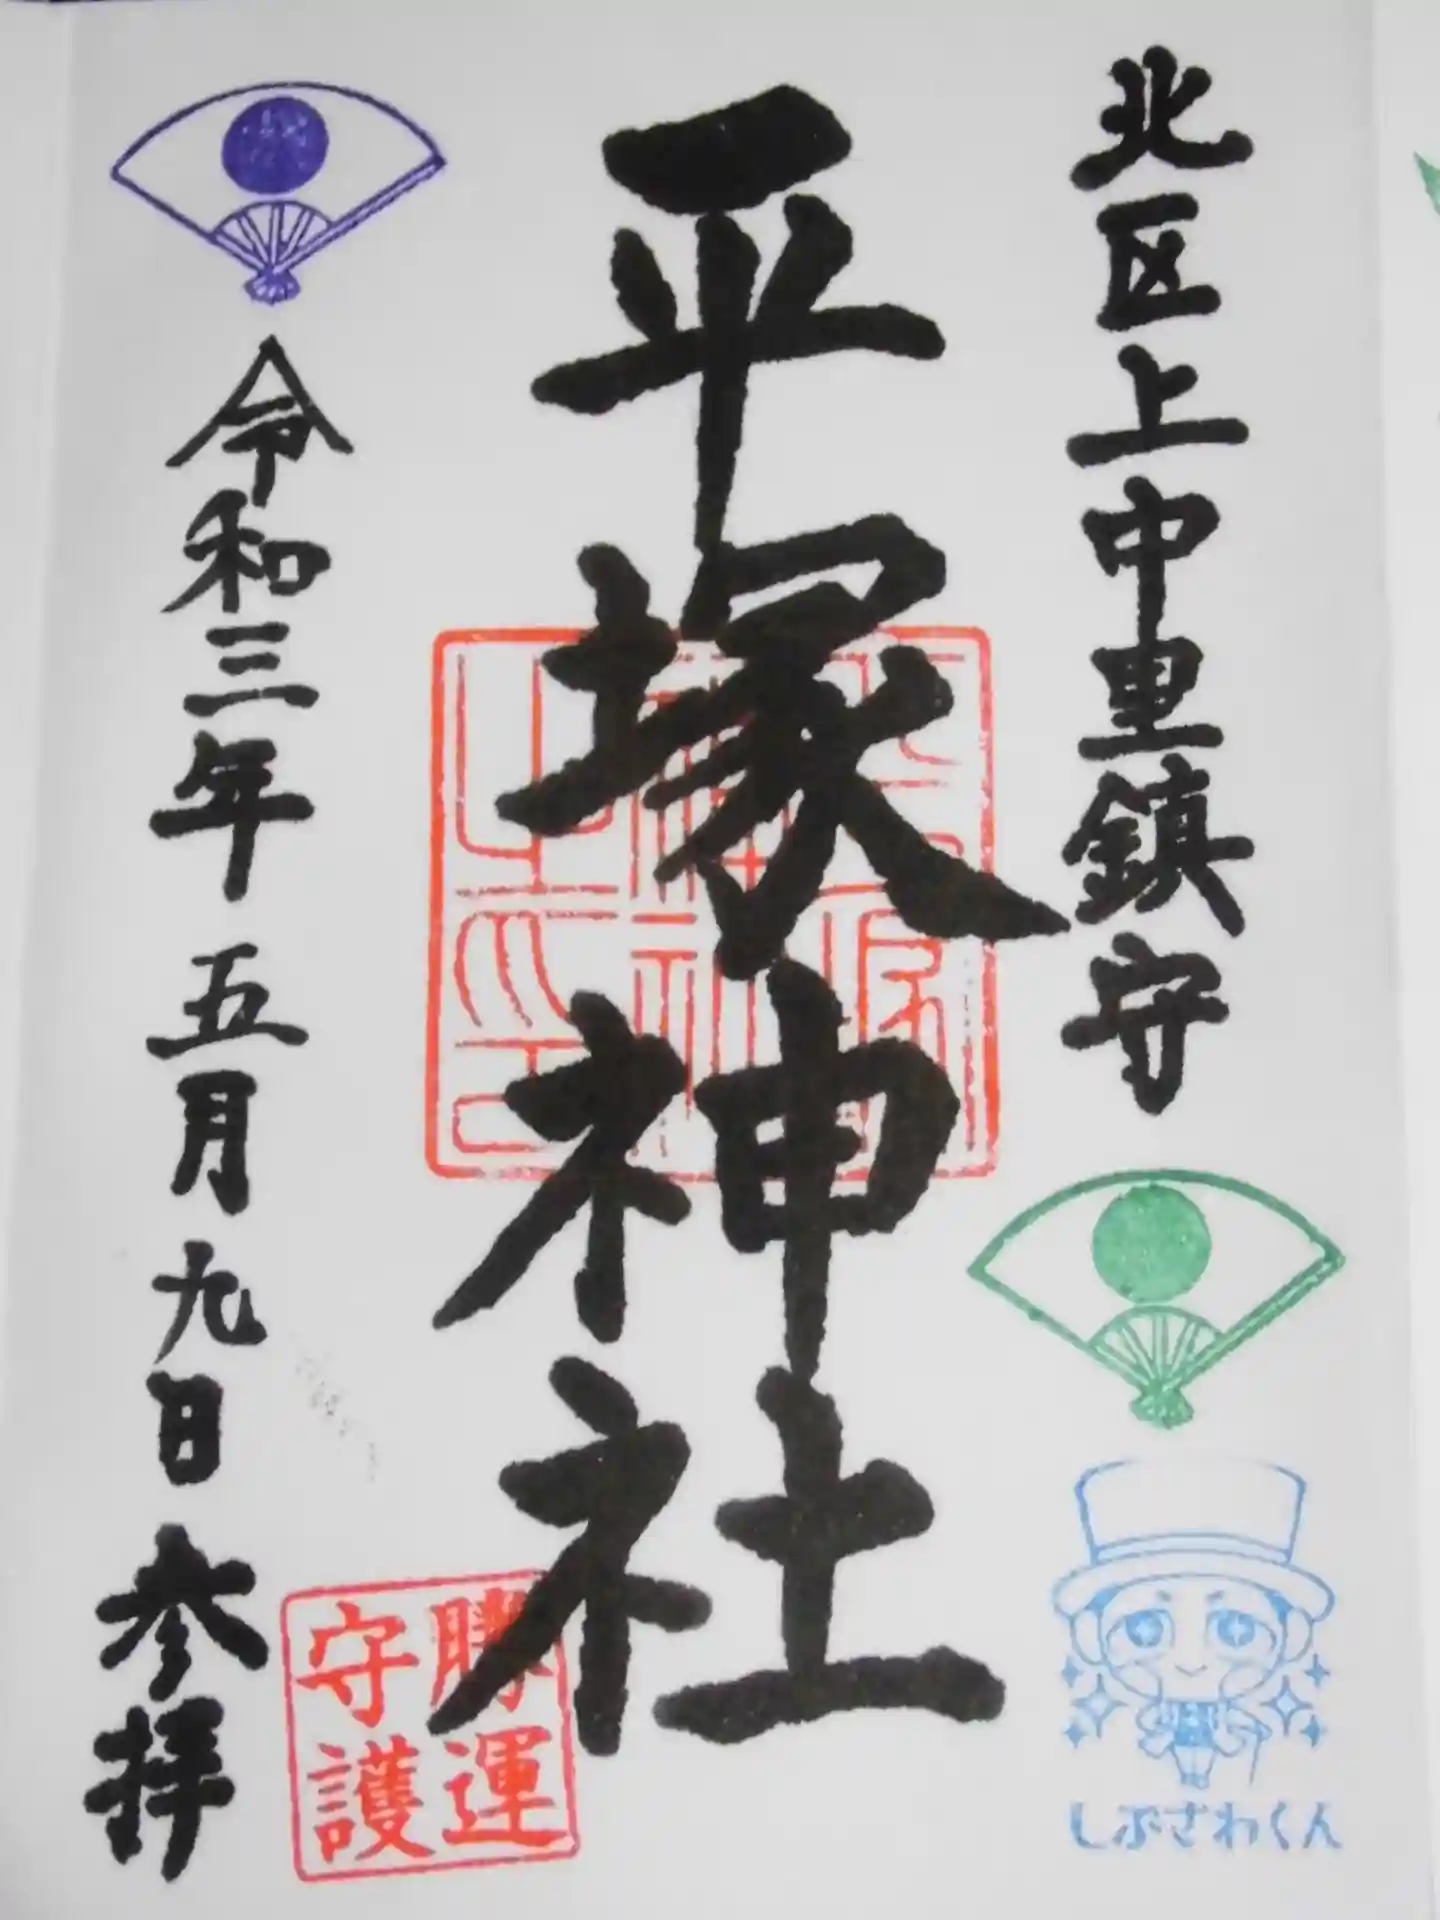 北区上中里鎮守
しぶざわくん
平塚神社
平塚神社之印
勝運守護
令和三年 五月 九日 参拝